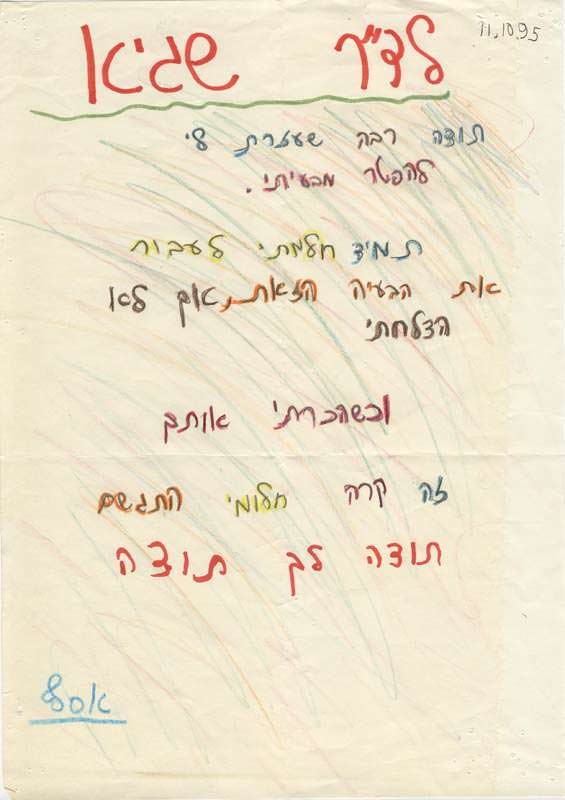 11.10.95
לד"ר שגיא
תודה רבה שעזרת לי
להפטר מבעיתי.
תמיד חלמתי לעבור
את הבעיה הזאת, אך לא
הצלחתי
וכשהכרתי אותך
זה קרה חלומי התגשם
תודה לך תודה
אסף